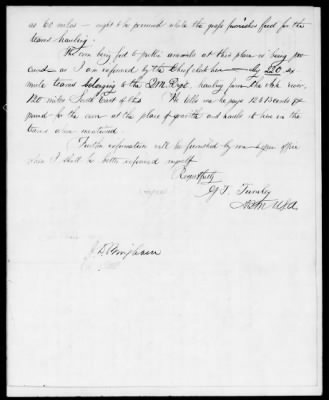 as 60 miles — ought to be procured while the grass furnishes feed for the
teams hauling.
The corn being fed to public animals at this place is being pro
cured as I am informed by the Chief clerk here — by 220 six
mule teams belonging to the QM Dept. hauling from the
120 miles South East of this. He tells me he pays 12 & 15 cents pr
pound for the corn at the place of growth and hauls it here in the
teams above mentioned
Further information will be furnished by me upon
when I shall be better informed myself
Respectfully
P. T. Turnley
AQM USA